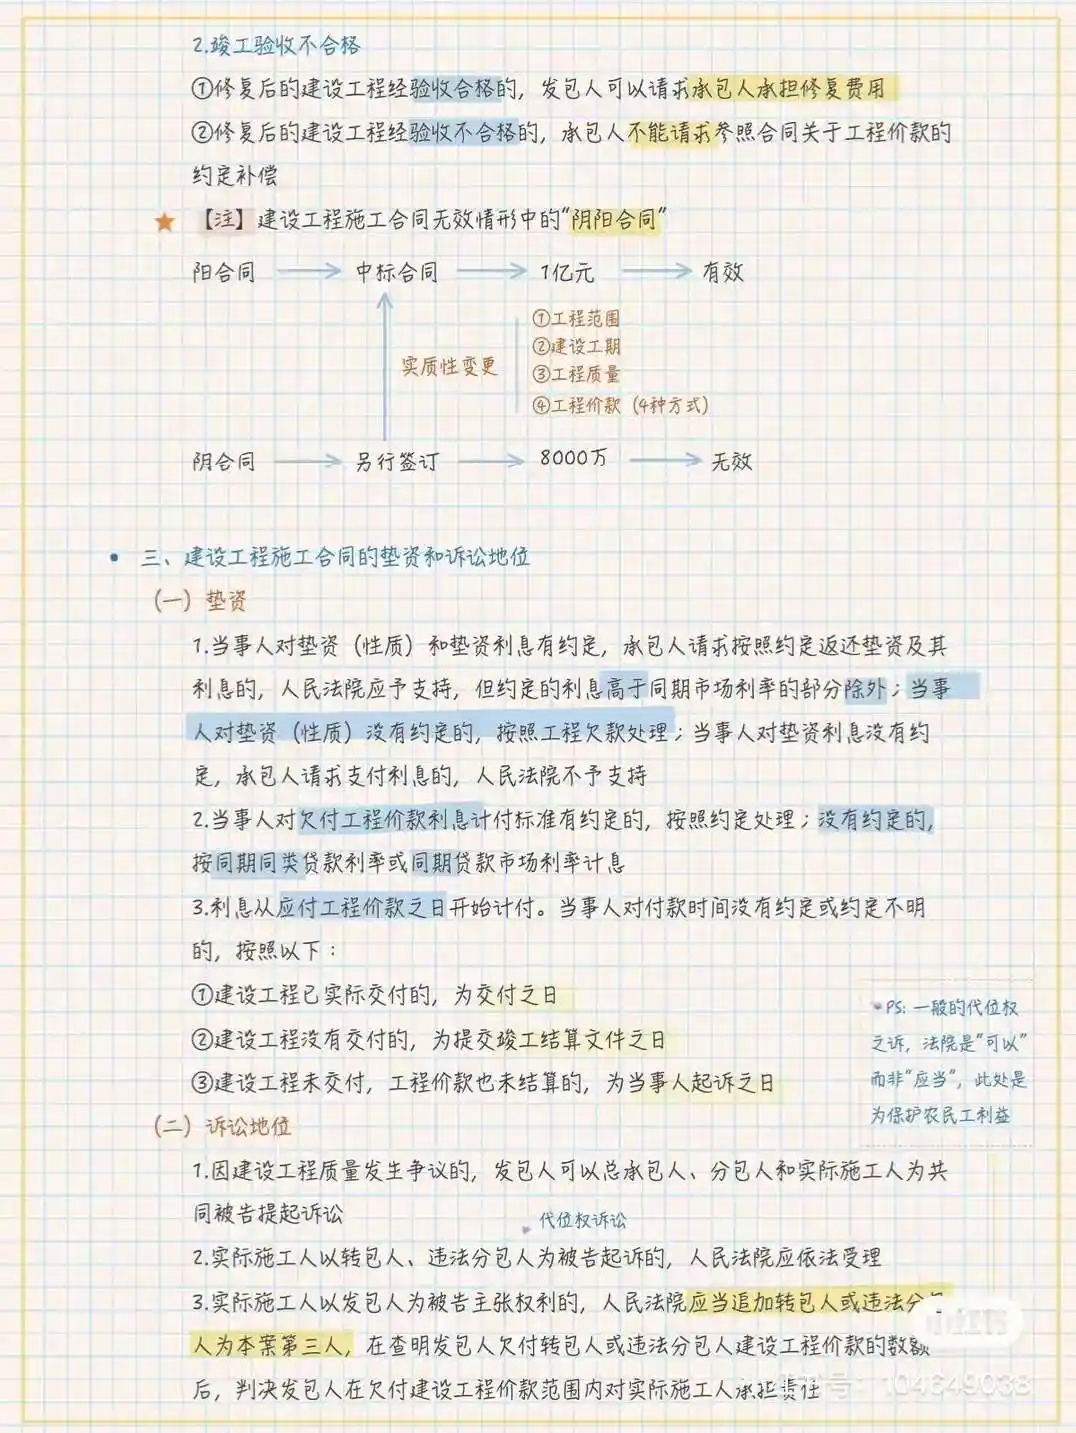 2.竣工验收不合格
①修复后的建设工程经验收合格的，发包人可以请求承包人承担修复费用
②修复后的建设工程经验收不合格的，承包人不能请求参照合同关于工程价款的
约定补偿
★ 【注】建设工程施工合同无效情形中的“阴阳合同”
阳合同 → 中标合同 → 1亿元 → 有效
①工程范围
②建设工期
实质性变更
③工程质量
④工程价款（4种方式）
阴合同 → 另行签订 → 8000万 → 无效
• 三、建设工程施工合同的垫资和诉讼地位
（一）垫资
1.当事人对垫资（性质）和垫资利息有约定，承包人请求按照约定返还垫资及其
利息的，人民法院应予支持，但约定的利息高于同期市场利率的部分除外；当事
人对垫资（性质）没有约定的，按照工程欠款处理；当事人对垫资利息没有约
定，承包人请求支付利息的，人民法院不予支持
2.当事人对欠付工程价款利息计付标准有约定的，按照约定处理；没有约定的，
按同期同类贷款利率或同期贷款市场利率计息
3.利息从应付工程价款之日开始计付。当事人对付款时间没有约定或约定不明
的，按照以下：
①建设工程已实际交付的，为交付之日
②建设工程没有交付的，为提交竣工结算文件之日
③建设工程未交付，工程价款也未结算的，为当事人起诉之日
PS：一般的代位权
之诉，法院是“可以”
而非“应当”，此处是
为保护农民工利益
（二）诉讼地位
1.因建设工程质量发生争议的，发包人可以总承包人、分包人和实际施工人为共
同被告提起诉讼
代位权诉讼
2.实际施工人以转包人、违法分包人为被告起诉的，人民法院应依法受理
3.实际施工人以发包人为被告主张权利的，人民法院应当追加转包人或违法分包
人为本案第三人，在查明发包人欠付转包人或违法分包人建设工程价款的数额
后，判决发包人在欠付建设工程价款范围内对实际施工人承担责任
小红书
104649038